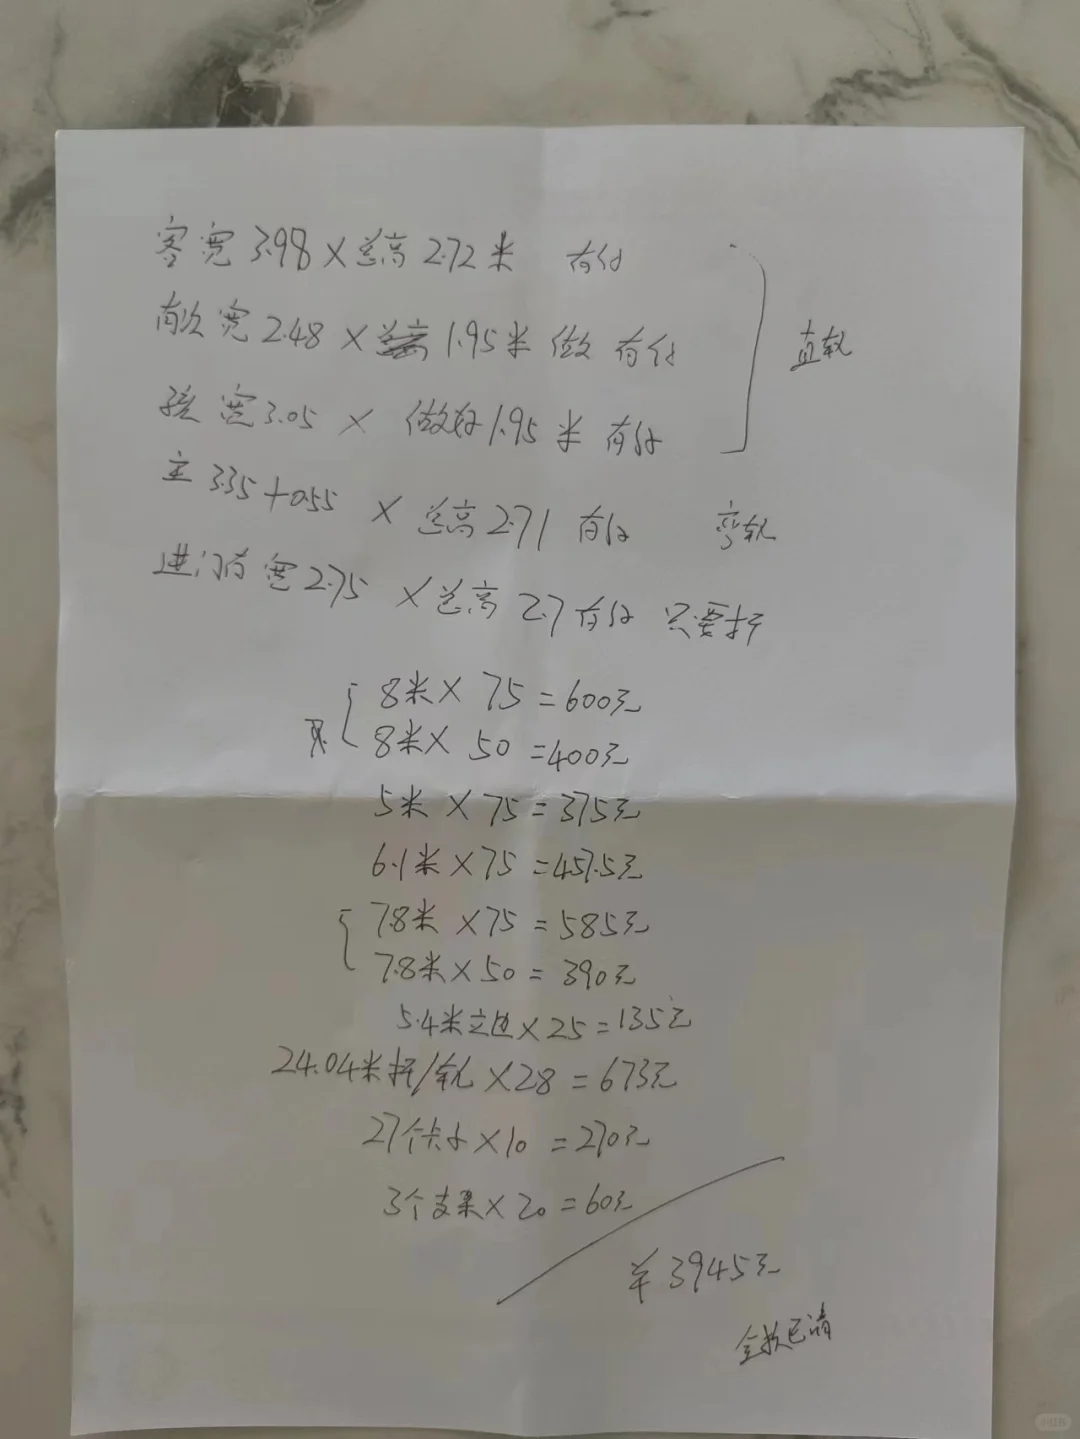 客宽3.98×总高2.72米 有
宽2.48×总高1.95米做 有
宽3.05× 做好1.95米 有
直轨
主3.35+0.55×总高2.71 有 弯轨
进门 宽2.75×总高2.7 有 只要杆
8米×75=600元
8米×50=400元
5米×75=375元
6.1米×75=457.5元
7.8米×75=585元
7.8米×50=390元
5.4米立边×25=135元
24.04米杆/轨×28=673元
27个卡子×10=270元
3个支架×20=60元
¥3945元
全款已清
小红书